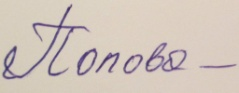 Попова